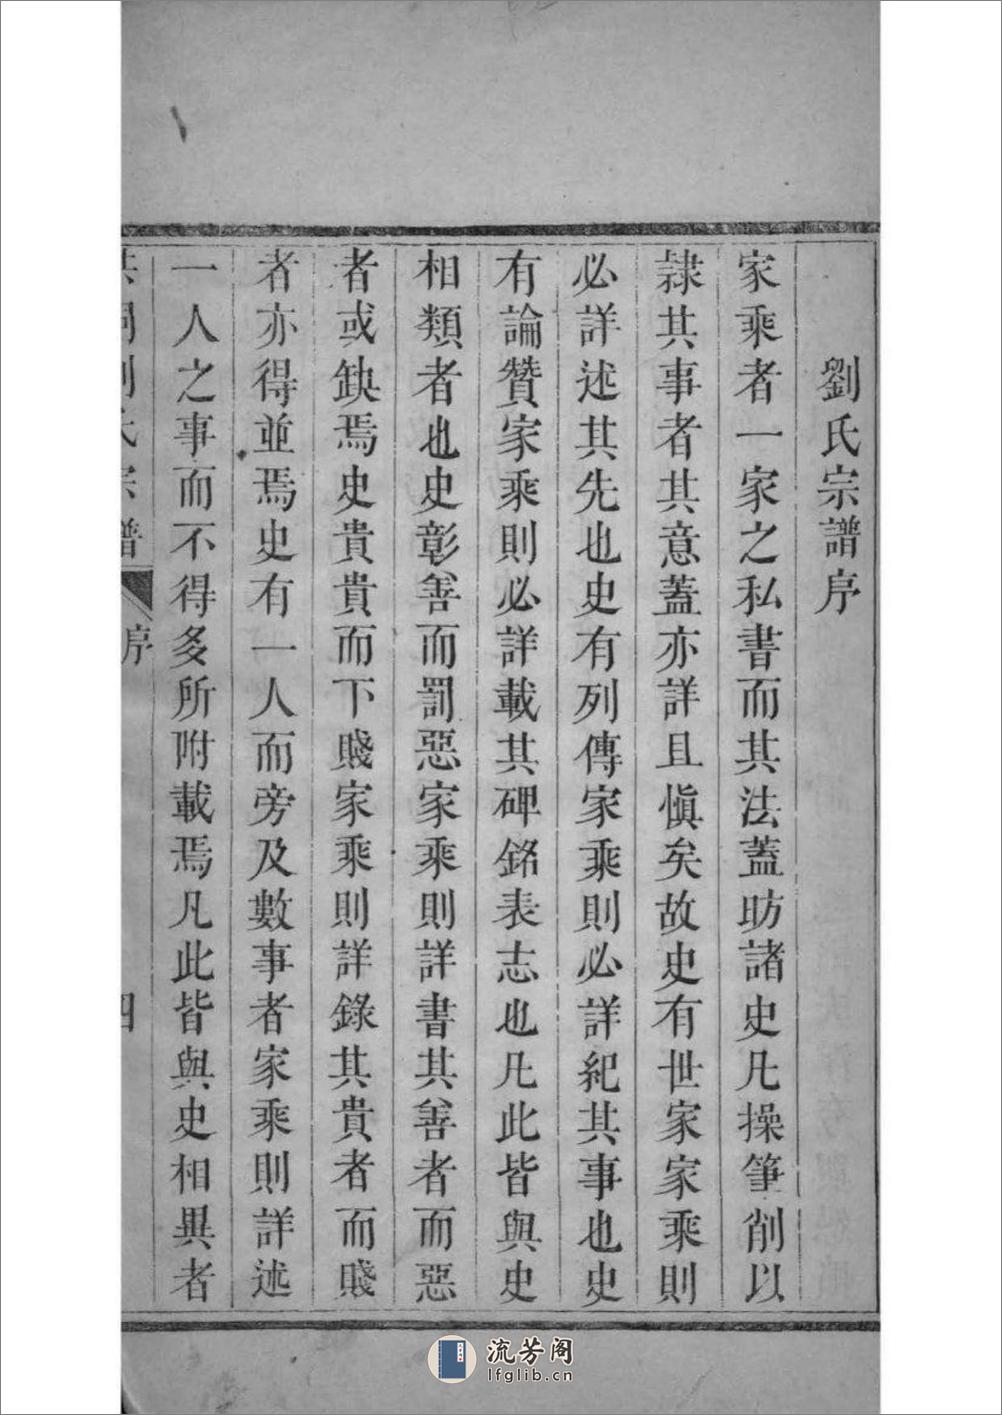 劉氏宗譜序
家乘者一家之私書而其法蓋昉諸史凡操筆削以
隷其事者其意蓋亦詳且愼矣故史有世家家乘則
必詳述其先也史有列傳家乘則必詳紀其事也史
有論贊家乘則必詳載其碑銘表志也凡此皆與史
相類者也史彰善而罰惡家乘則詳書其善者而惡
者或缺焉史貴貴而下賤家乘則詳錄其貴者而賤
者亦得並焉史有一人而旁及數事者家乘則詳述
一人之事而不得多所附載焉凡此皆與史相異者
洪洞劉氏宗譜
序
四
流芳阁
lfglib.cn